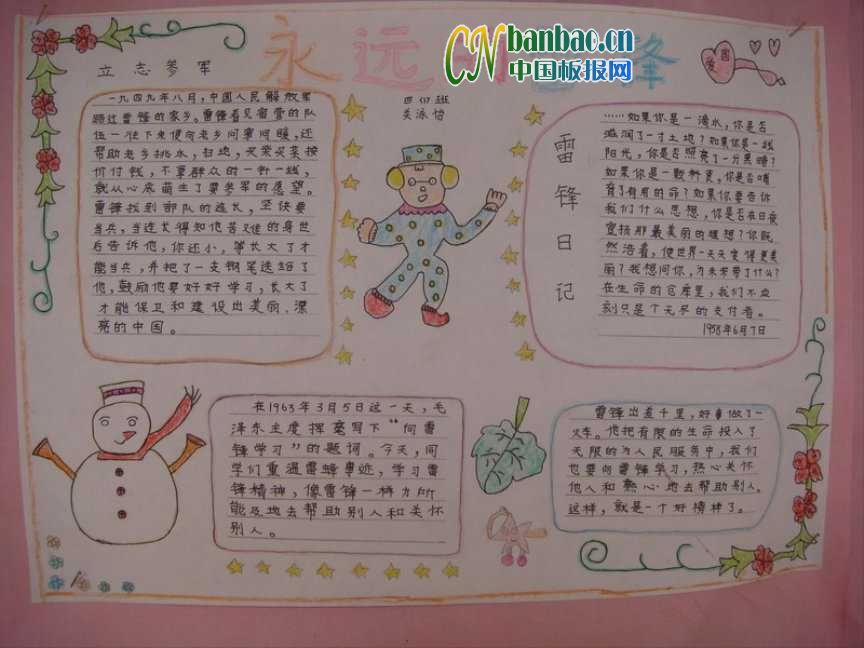 永远的雷锋
CN banbao.cn
中国板报网
爱国
立志参军
四(7)班
关泳怡
一九四九年八月,中国人民解放军
路过雷锋的家乡。雷锋看见宿营的队
伍一住下来便向老乡问寒问暖,还
帮助老乡挑水,扫地,买柴买菜按
价付钱,不拿群众的一针一线,
就从心底萌生了要参军的愿望。
雷锋找到部队的连长,坚决要
当兵,当连长得知他苦难的身世
后告诉他,你还小,等长大了才
能当兵,并把了一支钢笔送给了
他,鼓励他要好好学习,长大了
才能保卫和建设出美丽、漂
亮的中国。
雷锋日记
……如果你是一滴水,你是否
滋润了一寸土地?如果你是一线
阳光,你是否照亮了一分黑暗?
如果你是一颗粮食,你是否哺
育了有用的命?如果你要告诉
我们什么思想,你是否在日夜
宣扬那最美丽的理想?你既
然活着,
使世界一天天变得更美
丽?我想问你,为未来带了什么?
在生命的仓库里,我们不应
刻只是个无尽的支付者。
1958年6月7日
在1963年3月5日这一天,毛
泽东主席挥毫写下“向雷
锋学习”的题词。今天,同
学们重温雷锋事迹,学习雷
锋精神,像雷锋一样力所
能及地去帮助别人和关怀
别人。
雷锋出差千里,好事做了一
火车。他把有限的生命投入了
无限的为人民服务中,我们
也要向雷锋学习,热心关怀
他人和热心地去帮助别人。
这样,就是一个好榜样了。